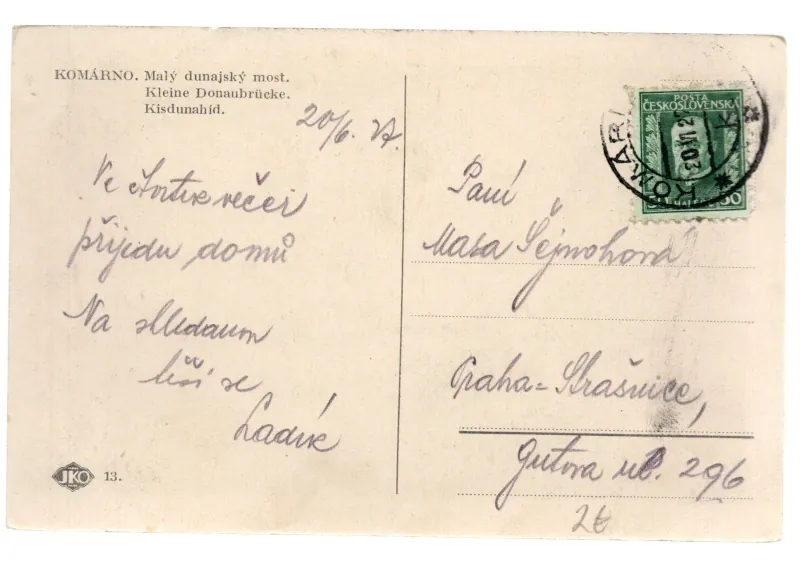 KOMÁRNO. Malý dunajský most.
Kleine Donaubrücke.
Kisdunahíd.
20/6. 27.
Ve čtvrtek večer
přijedu domů
Na shledanou
těší se
Ladík
JKO 13.
POSTA
ČESKOSLOVENSKÁ
KOMÁR
20 VI 2
Paní
Masa Šejnohová
Praha=Strašnice,
Gutova ul. 296